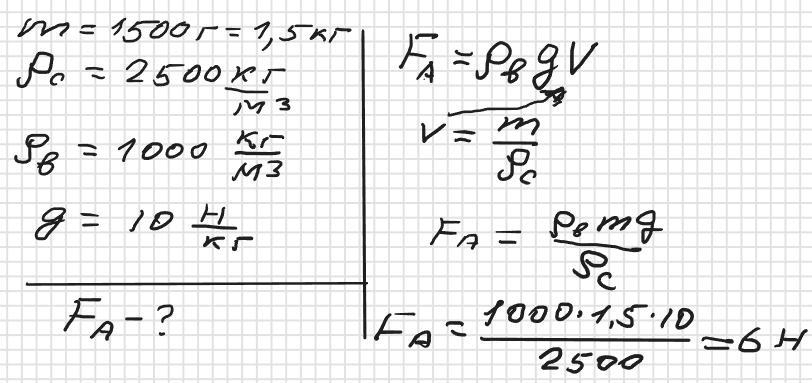 m = 1500г = 1,5кг
ρc = 2500 кг/м3
ρв = 1000 кг/м3
g = 10 Н/кг
FA - ?
FA = ρв g V
V = m/ρc
FA = ρв mg/ρc
FA = 1000·1,5·10/2500 = 6 Н